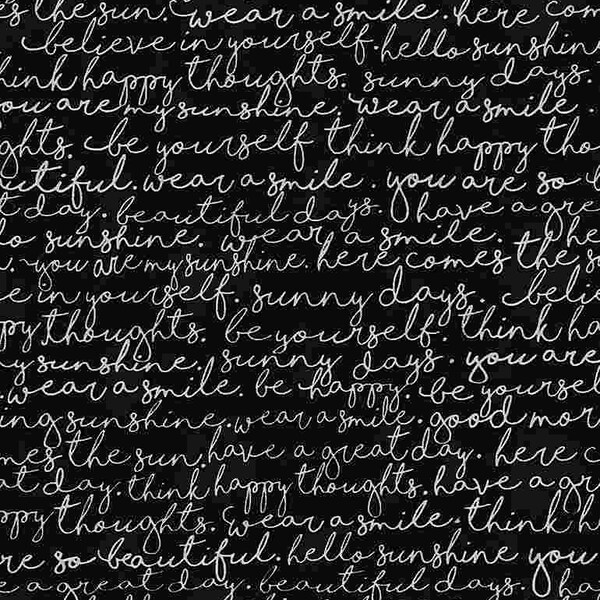 s the sun. wear a smile. here com
believe in yourself. hello sunshin
hink happy thoughts. sunny days.
ou are my sunshine. wear a smile.
ghts. be yourself think happy tho
utiful. wear a smile. you are so b
t day. beautiful days. have a gre
lo sunshine. wear a smile. the
. you are my sunshine. here comes the s
e in yourself. sunny days. beli
py thoughts. be yourself. think ha
y sunshine. sunny days. you are
. wear a smile. be happy. be yoursel
ing sunshine. wear a smile. good mor
mes the sun. have a great day. here c
at day. think happy thoughts. have a gr
ppy thoughts. wear a smile. think h
re so beautiful. hello sunshine you
e a great day. beautiful days. ha